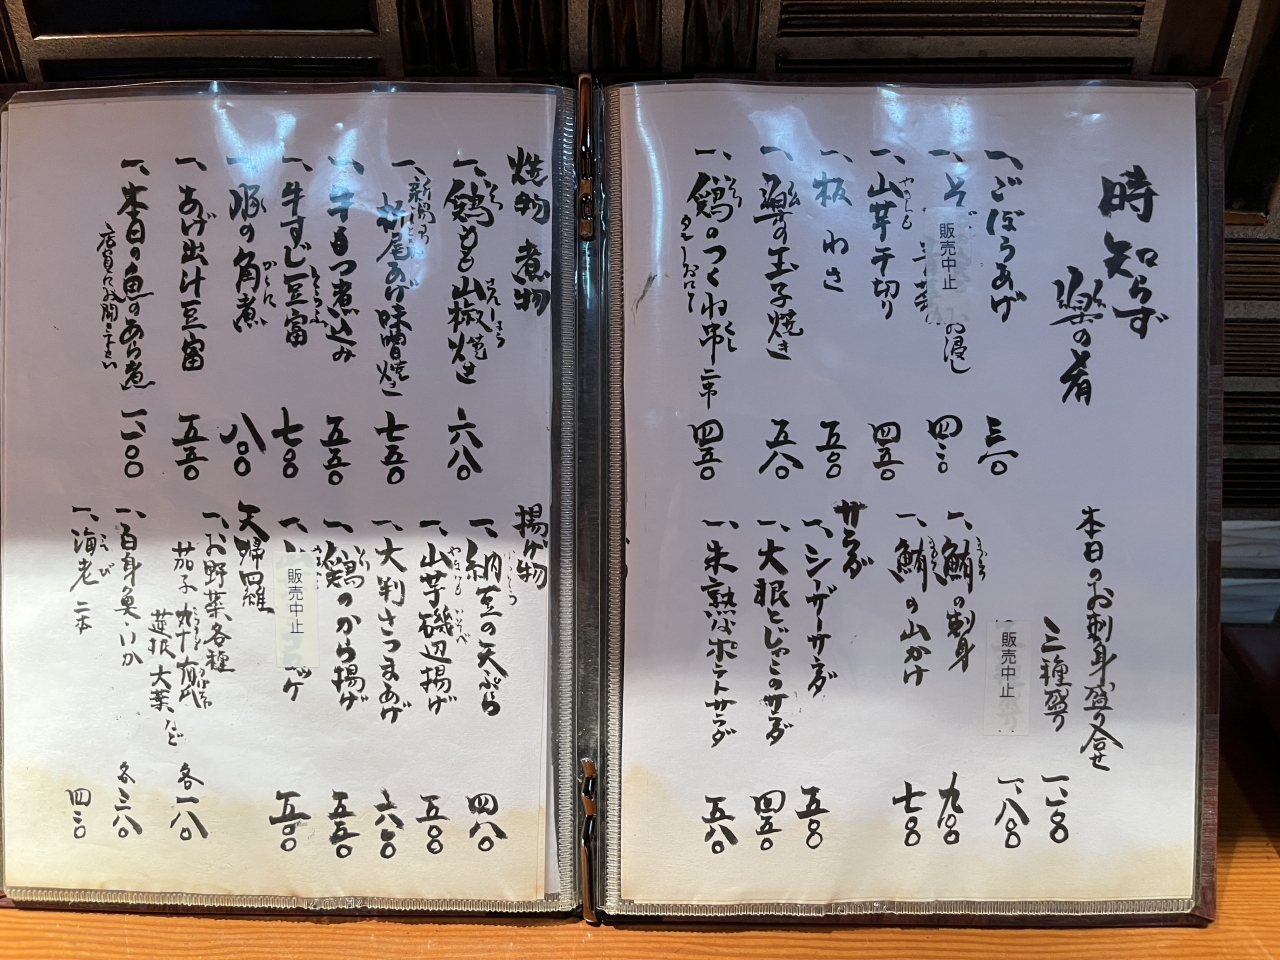 時知らず
楽の肴
一、ごぼうあげ 三八〇
一、そ 販売中止 お浸し 四二〇
一、山芋千切り 四五〇
一、板わさ 五〇〇
一、楽の玉子焼き 五八〇
一、鶏のつくね串 二本 四五〇
本日のお刺身盛り合せ
三種盛り 一、二〇〇
販売中止 一、八〇〇
一、鮪の刺身 九〇〇
一、鮪の山かけ 七〇〇
サラダ
一、シーザーサラダ 五〇〇
一、大根とじゃこのサラダ 四五〇
一、半熟なポテトサラダ 五八〇
焼物 煮物
一、鶏もも山椒焼き 六八〇
一、新潟 栃尾あげ味噌焼き 七五〇
一、牛もつ煮込み 五五〇
一、牛すじ豆富 七〇〇
一、豚の角煮 八〇〇
一、あげ出汁豆富 五五〇
一、本日の魚のあら煮 一、二〇〇
店員にお聞き下さい
揚げ物
一、納豆の天ぷら 四八〇
一、山芋磯辺揚げ 五〇〇
一、大判さつまあげ 六八〇
一、鶏のから揚げ 五五〇
一、 販売中止 ッケ 五〇〇
天婦羅
一、お野菜各種
茄子 蓮根 大葉 など 各一八〇
一、白身魚 いか 各三八〇
一、海老 二本 四二〇